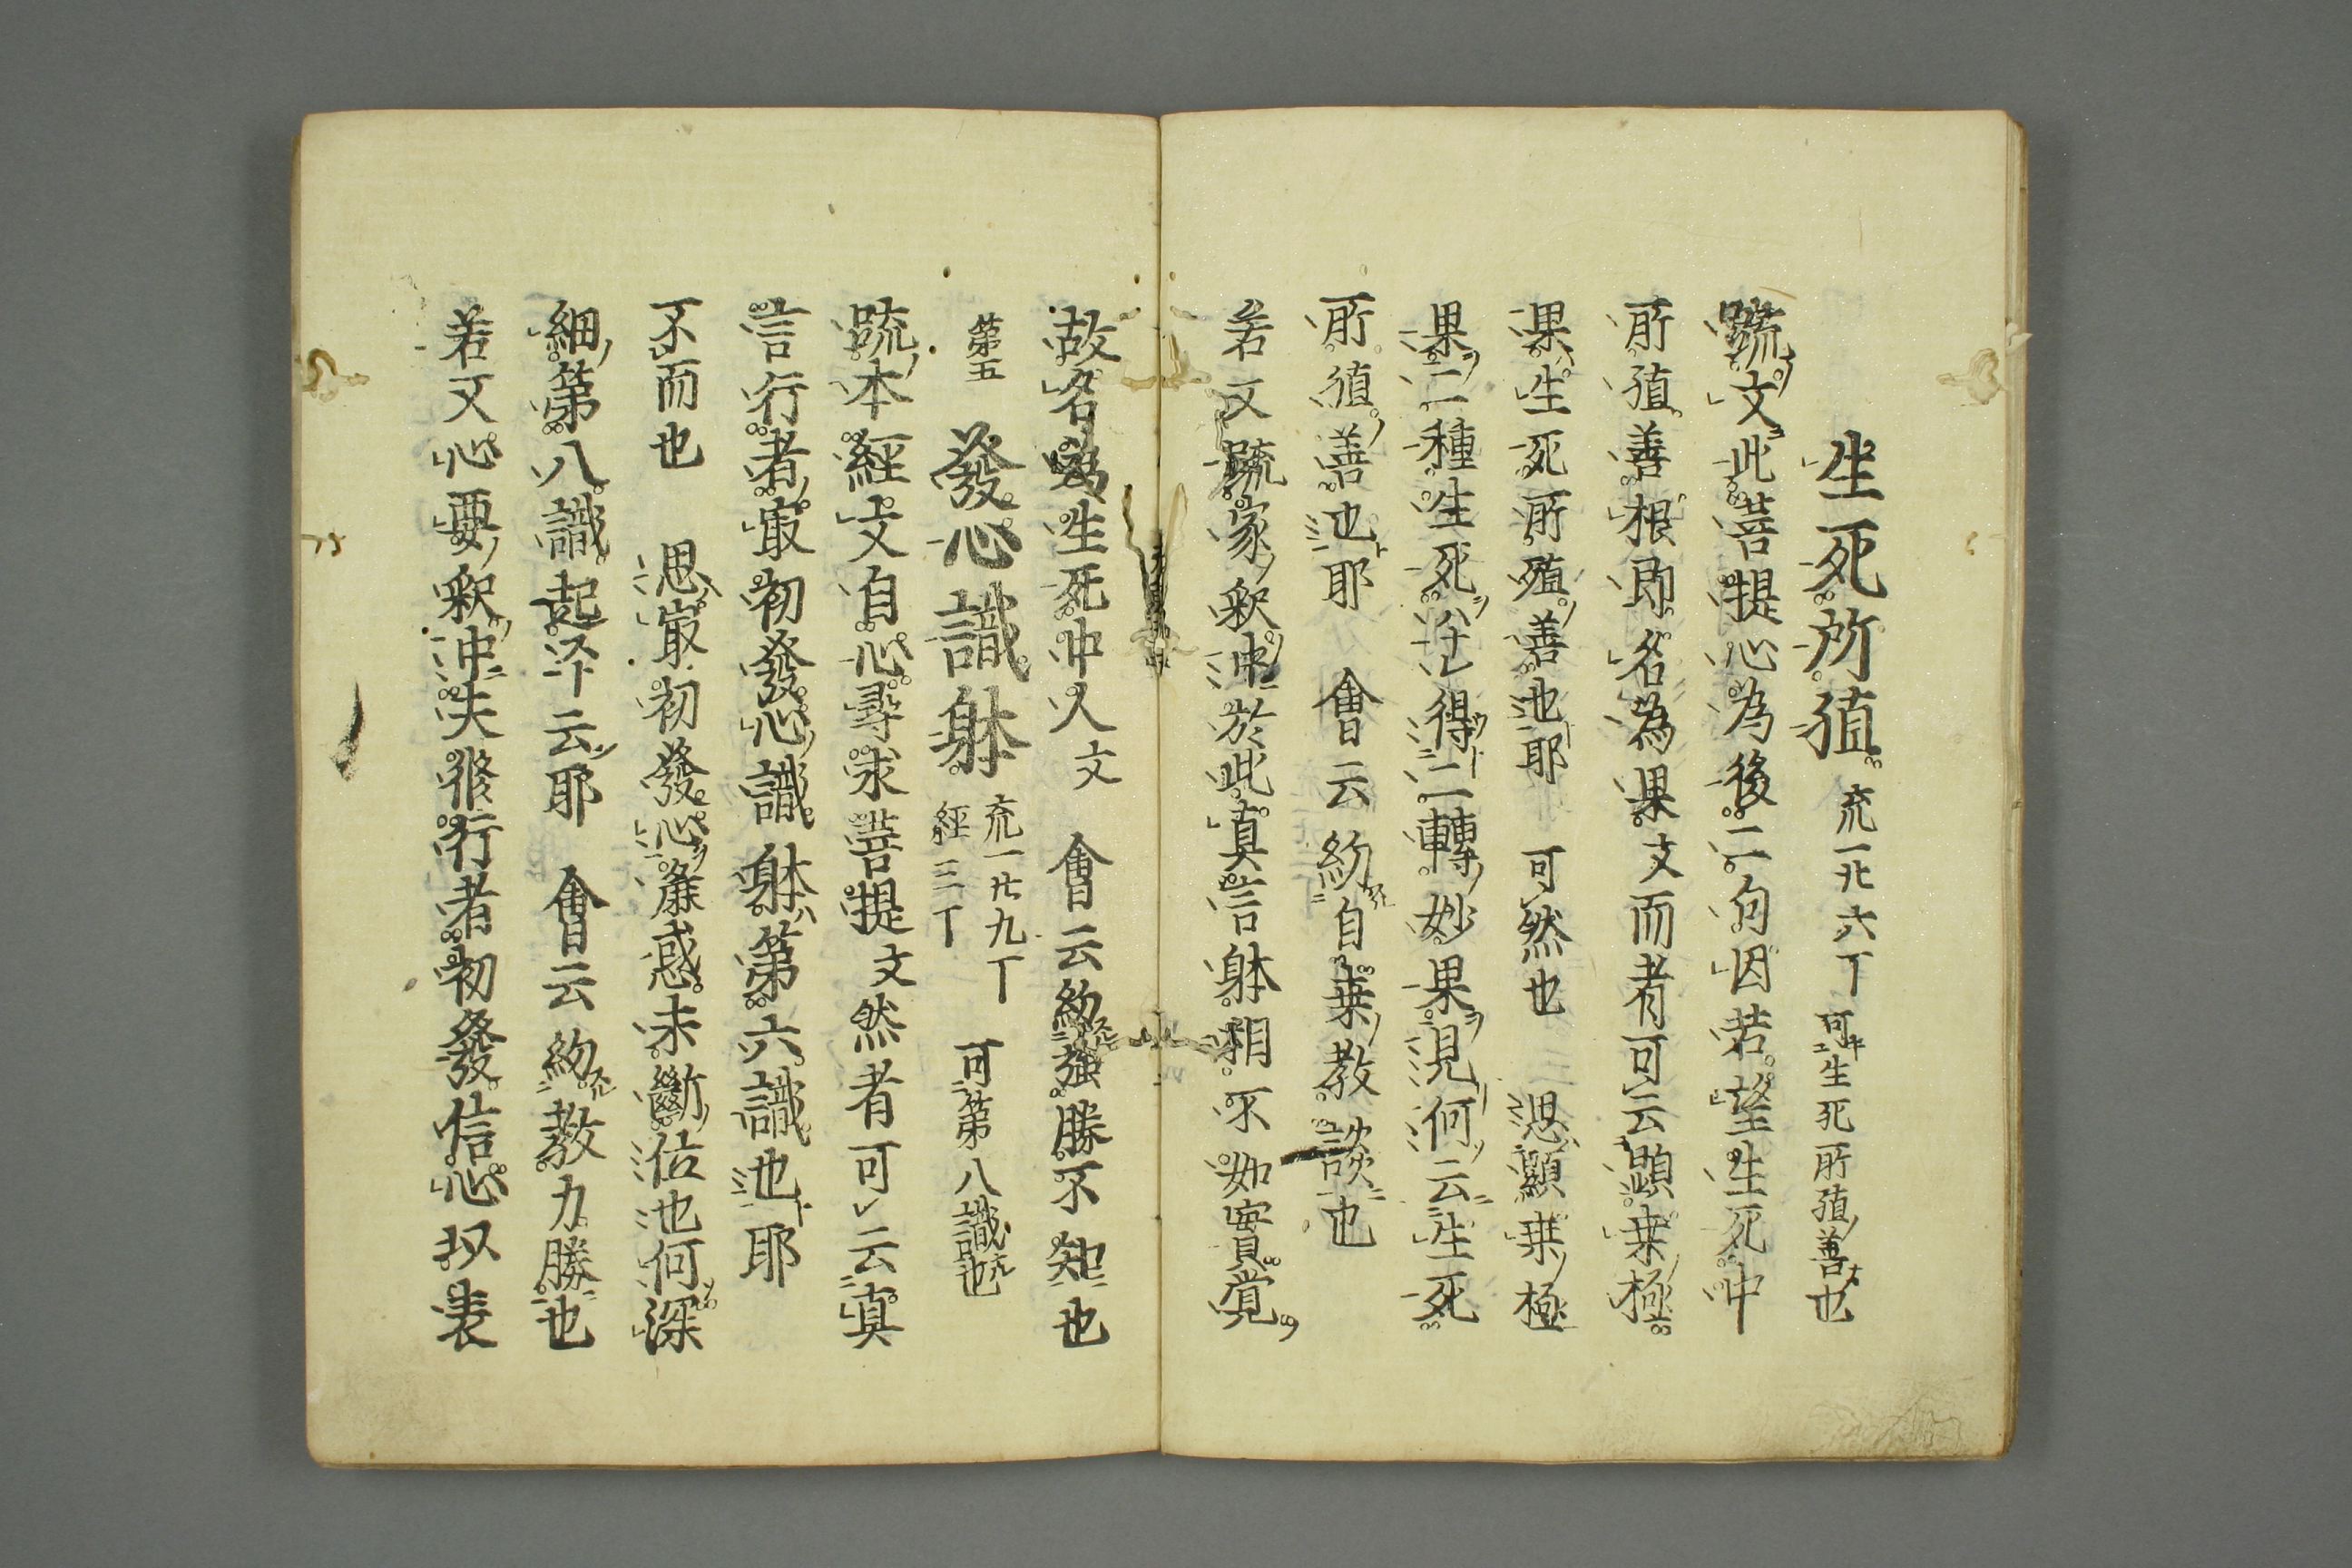 生死所殖 疏一卄六丁 可生死所殖善也
疏文此菩提心為後二句因若望生死中
所殖善根即名為果文而者可云顕乗極
果生死所殖善也耶 可然也 思顕乗極
果二種生死 得二転妙果況何云生死
所殖善也耶 會云約自乗教談也
若文疏家釈中於此真言躰相不如實覚
故名為生死中人文 會云約強勝不知也
第五 發心識躰 疏一卄九丁 経三丁 可第八識也
疏本経文自心尋求菩提文然者可云真
言行者最初發心識躰第六識也耶
不而也 思最初發心麁惑未斷位也何深
細第八識起 云耶 會云約教力勝也
若文心要釈中夫修行者初發信心以表